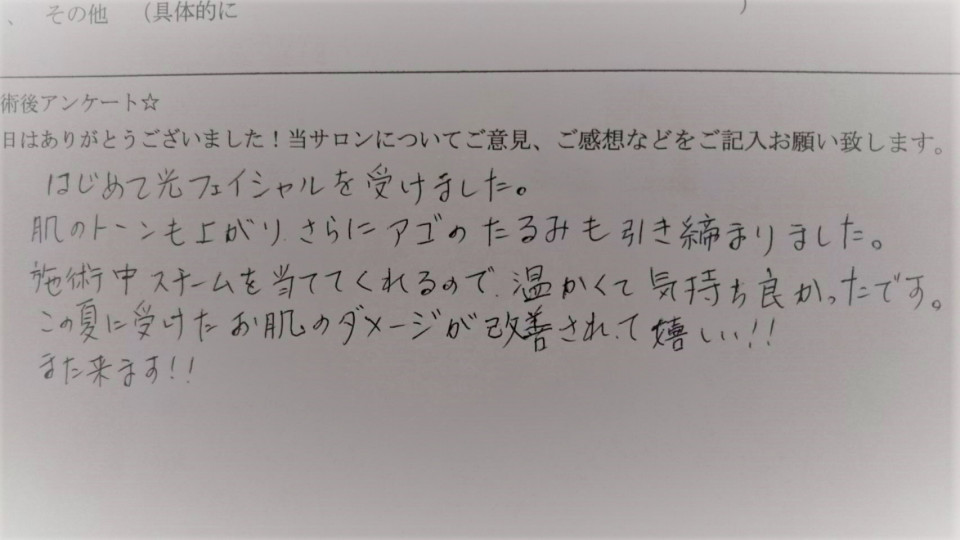 、 その他 （具体的に ）
術後アンケート☆
日はありがとうございました！当サロンについてご意見、ご感想などをご記入お願い致します。
はじめて光フェイシャルを受けました。
肌のトーンも上がり、さらにアゴのたるみも引き締まりました。
施術中スチームを当ててくれるので、温かくて気持ち良かったです。
この夏に受けたお肌のダメージが改善されて嬉しい!!
また来ます!!